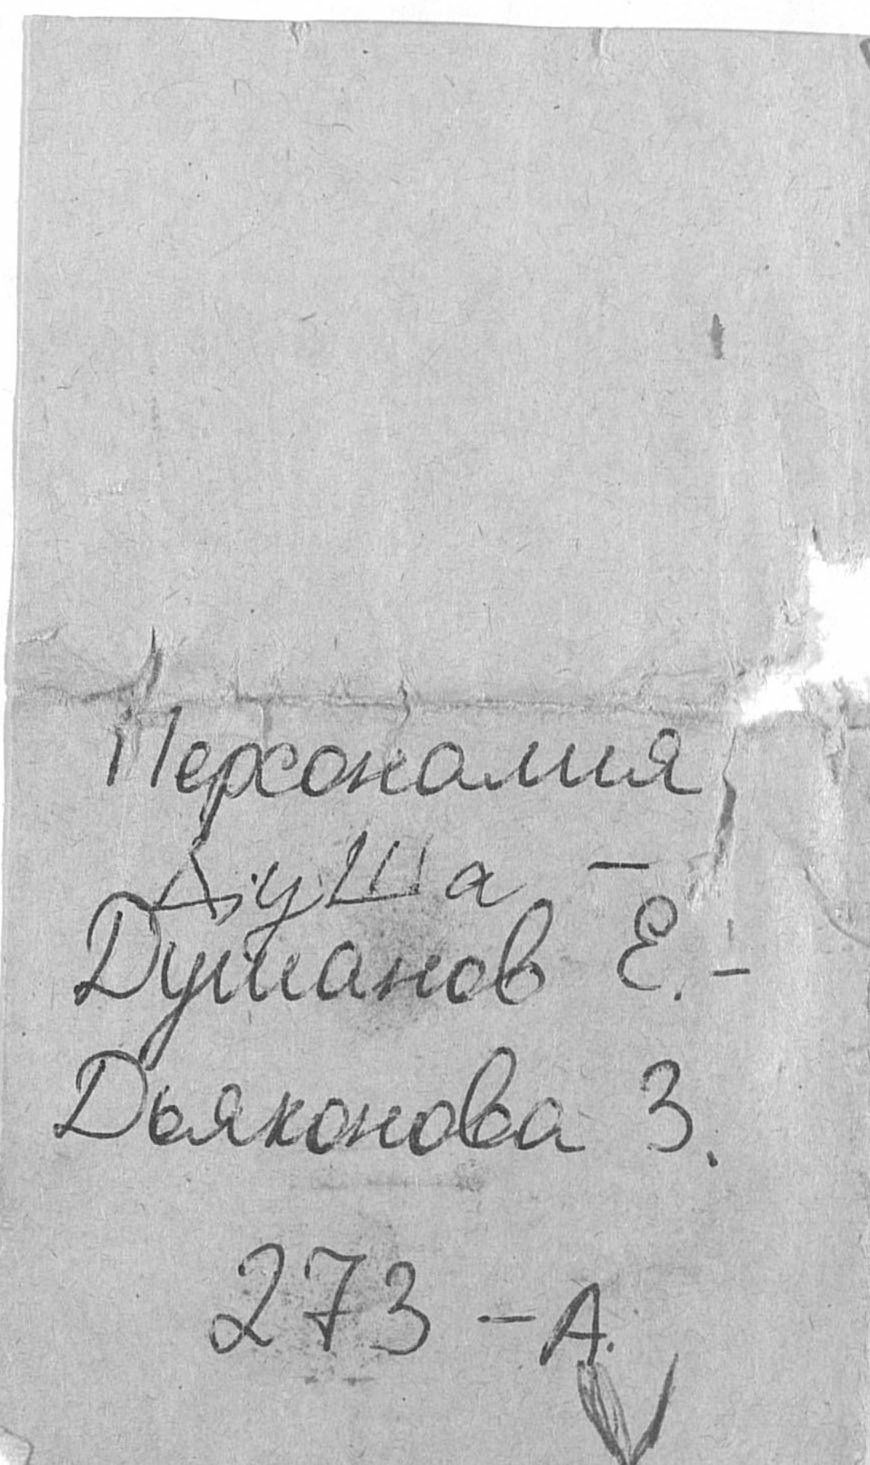 Персоналия
Душа –
Душанов Е. –
Дьяконова З.
273 – А.